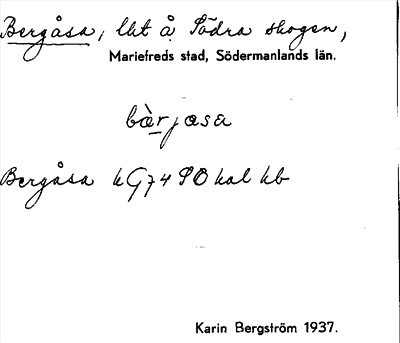 Bergåsa, lht å Södra skogen,
Mariefreds stad, Södermanlands län.
bàrjasa
Bergåsa kG74 SO kal kb
Karin Bergström 1937.